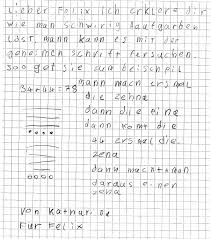 Lieber Felix ich erkläre dir
wie man schwirig lautgarben
löst, mann kann es mit der
geheimen schrift fersuchen.
soo get sie zum beischpil
34+44=78 mann mach ersmal
die zehna
dann die eine
dann komt die
44 ersmal die
zena
dann macht man
daraus einen
zena
von Katharina
Für Felix